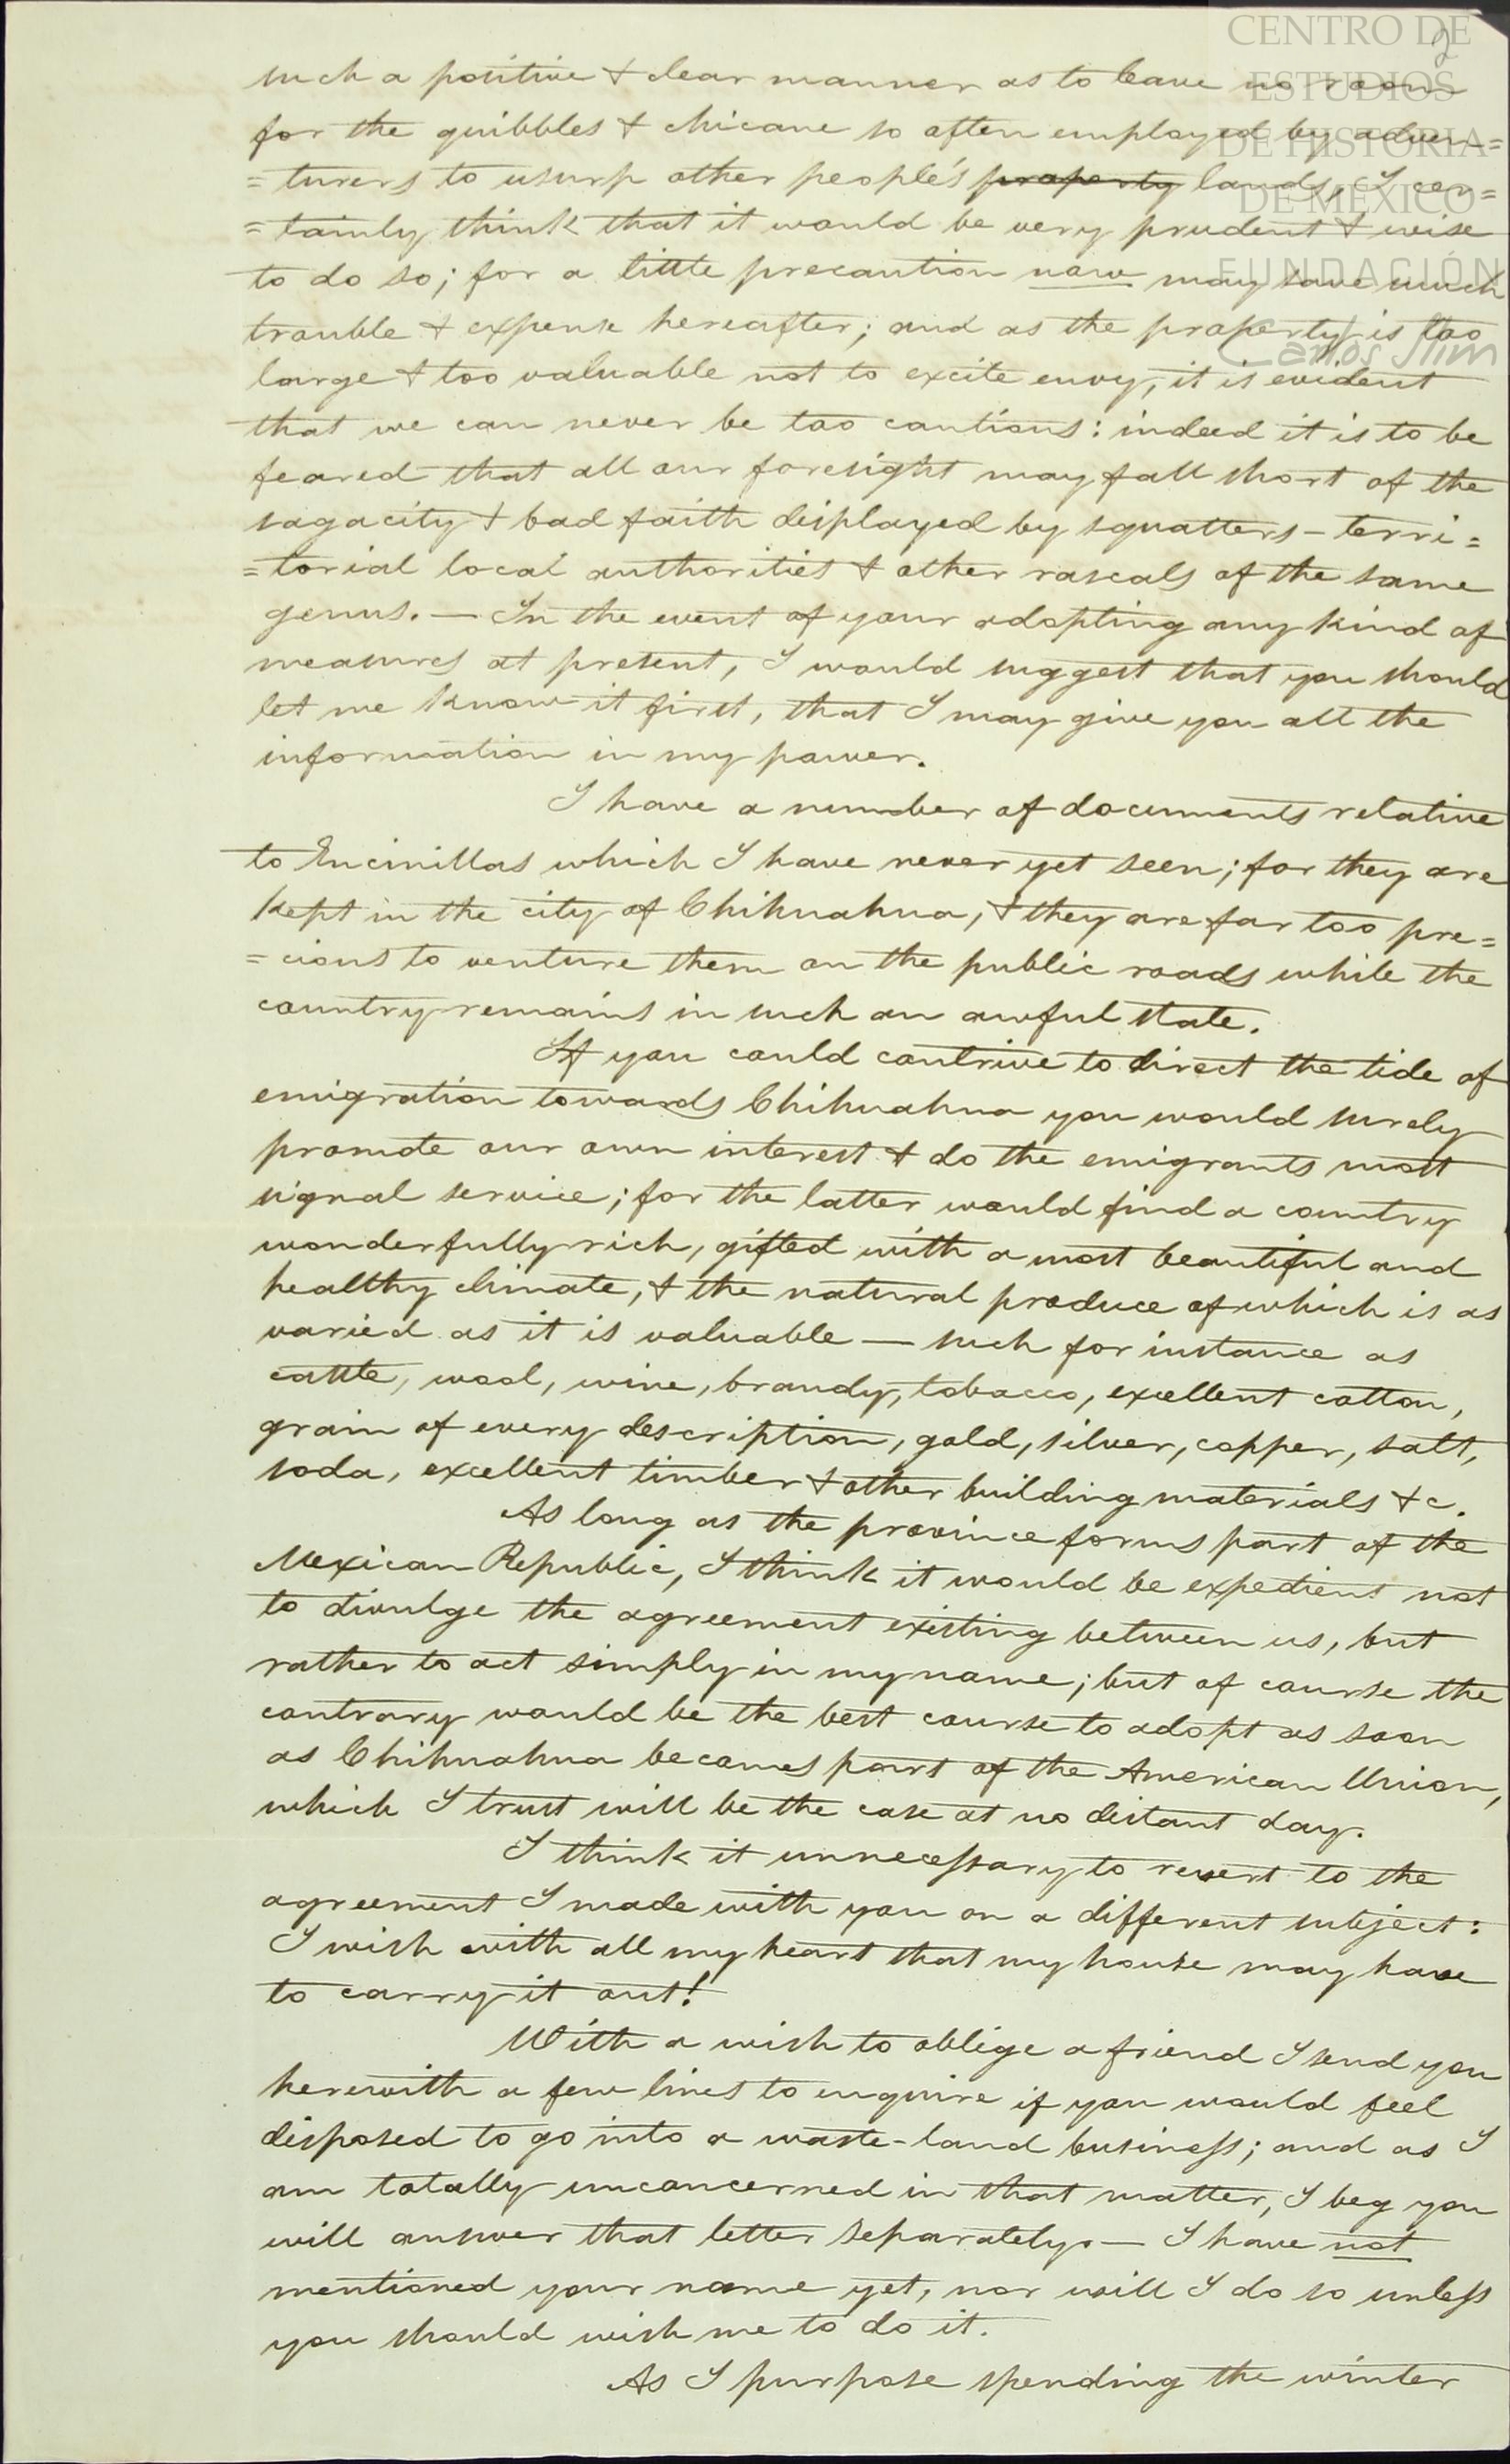 CENTRO DE
ESTUDIOS
DE HISTORIA
DE MÉXICO
FUNDACIÓN
Carlos Slim
2
such a positive & clear manner as to leave no room
for the quibbles & chicane so often employed by adven=
=turers to usurp other people's property lands, I cer=
=tainly think that it would be very prudent & wise
to do so; for a little precaution now may save much
trouble & expense hereafter; and as the property is too
large & too valuable not to excite envy, it is evident
that we can never be too cautious: indeed it is to be
feared that all our foresight may fall short of the
sagacity & bad faith displayed by squatters – terri=
=torial local authorities & other rascals of the same
genus. — In the event of your adopting any kind of
measures at present, I would suggest that you should
let me know it first, that I may give you all the
information in my power.
I have a number of documents relative
to Encinillas which I have never yet seen; for they are
kept in the city of Chihuahua, & they are far too pre=
=cious to venture them on the public roads while the
country remains in such an awful state.
If you could contrive to direct the tide of
emigration towards Chihuahua you would surely
promote our own interest & do the emigrants most
signal service; for the latter would find a country
wonderfully rich, gifted with a most beautiful and
healthy climate, & the natural produce of which is as
varied as it is valuable — such for instance as
cattle, wool, wine, brandy, tobacco, excellent cotton,
grain of every description, gold, silver, copper, salt,
soda, excellent timber & other building materials &c.
As long as the province forms part of the
Mexican Republic, I think it would be expedient not
to divulge the agreement existing between us, but
rather to act simply in my name; but of course the
contrary would be the best course to adopt as soon
as Chihuahua becomes part of the American Union,
which I trust will be the case at no distant day.
I think it unnecessary to revert to the
agreement I made with you on a different subject:
I wish with all my heart that my house may have
to carry it out!
With a wish to oblige a friend I send you
herewith a few lines to enquire if you would feel
disposed to go into a waste-land business; and as I
am totally unconcerned in that matter, I beg you
will answer that letter separately. — I have not
mentioned your name yet, nor will I do so unless
you should wish me to do it.
As I purpose spending the winter